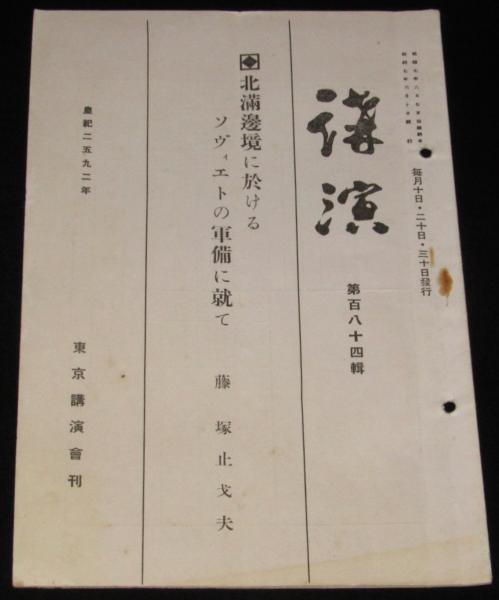 毎月十日・二十日・三十日發行
講演
第百八十四輯
北滿邊境に於ける
ソヴィエトの軍備に就て
藤塚止戈夫
皇紀二五九二年
東京講演會刊